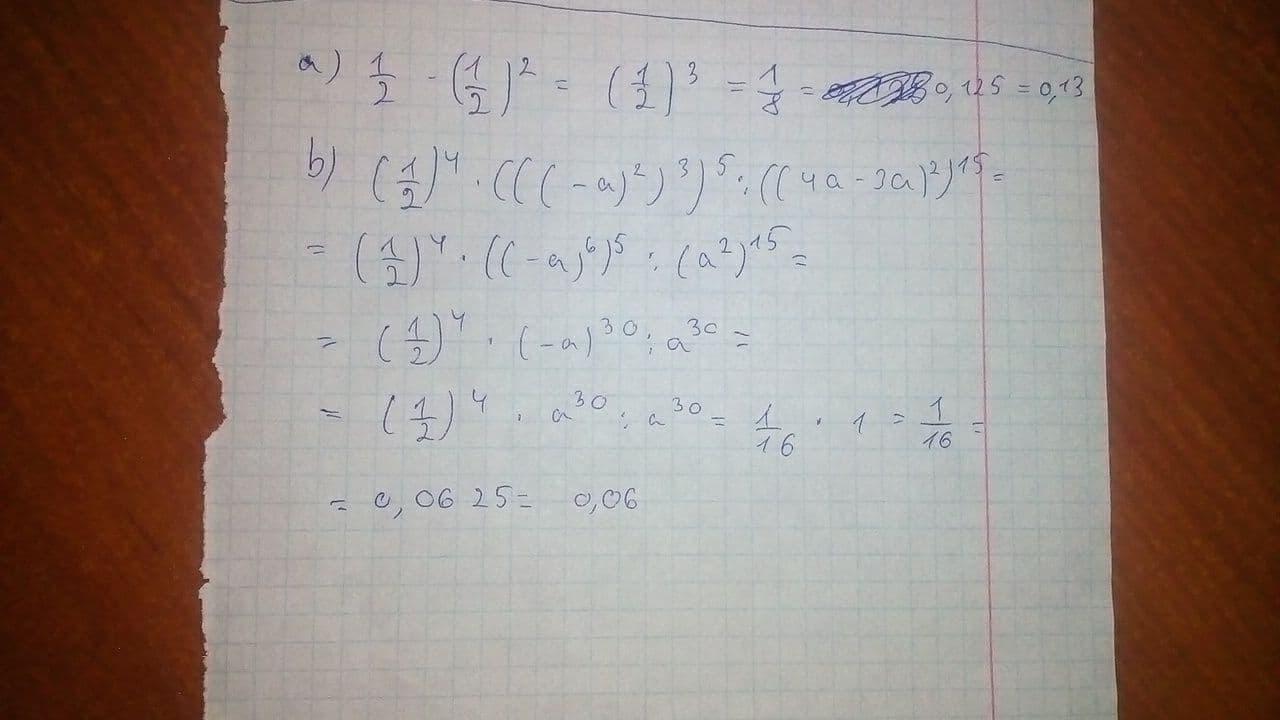 a) 1/2 · (1/2)² = (1/2)³ = 1/8 = 0,125 = 0,13
b) (1/2)⁴ · (((-a)²)³)⁵ : ((4a - 3a)²)¹⁵ =
= (1/2)⁴ · ((-a)⁶)⁵ : (a²)¹⁵ =
= (1/2)⁴ · (-a)³⁰ : a³⁰ =
= (1/2)⁴ · a³⁰ : a³⁰ = 1/16 · 1 = 1/16 =
= 0,0625 = 0,06